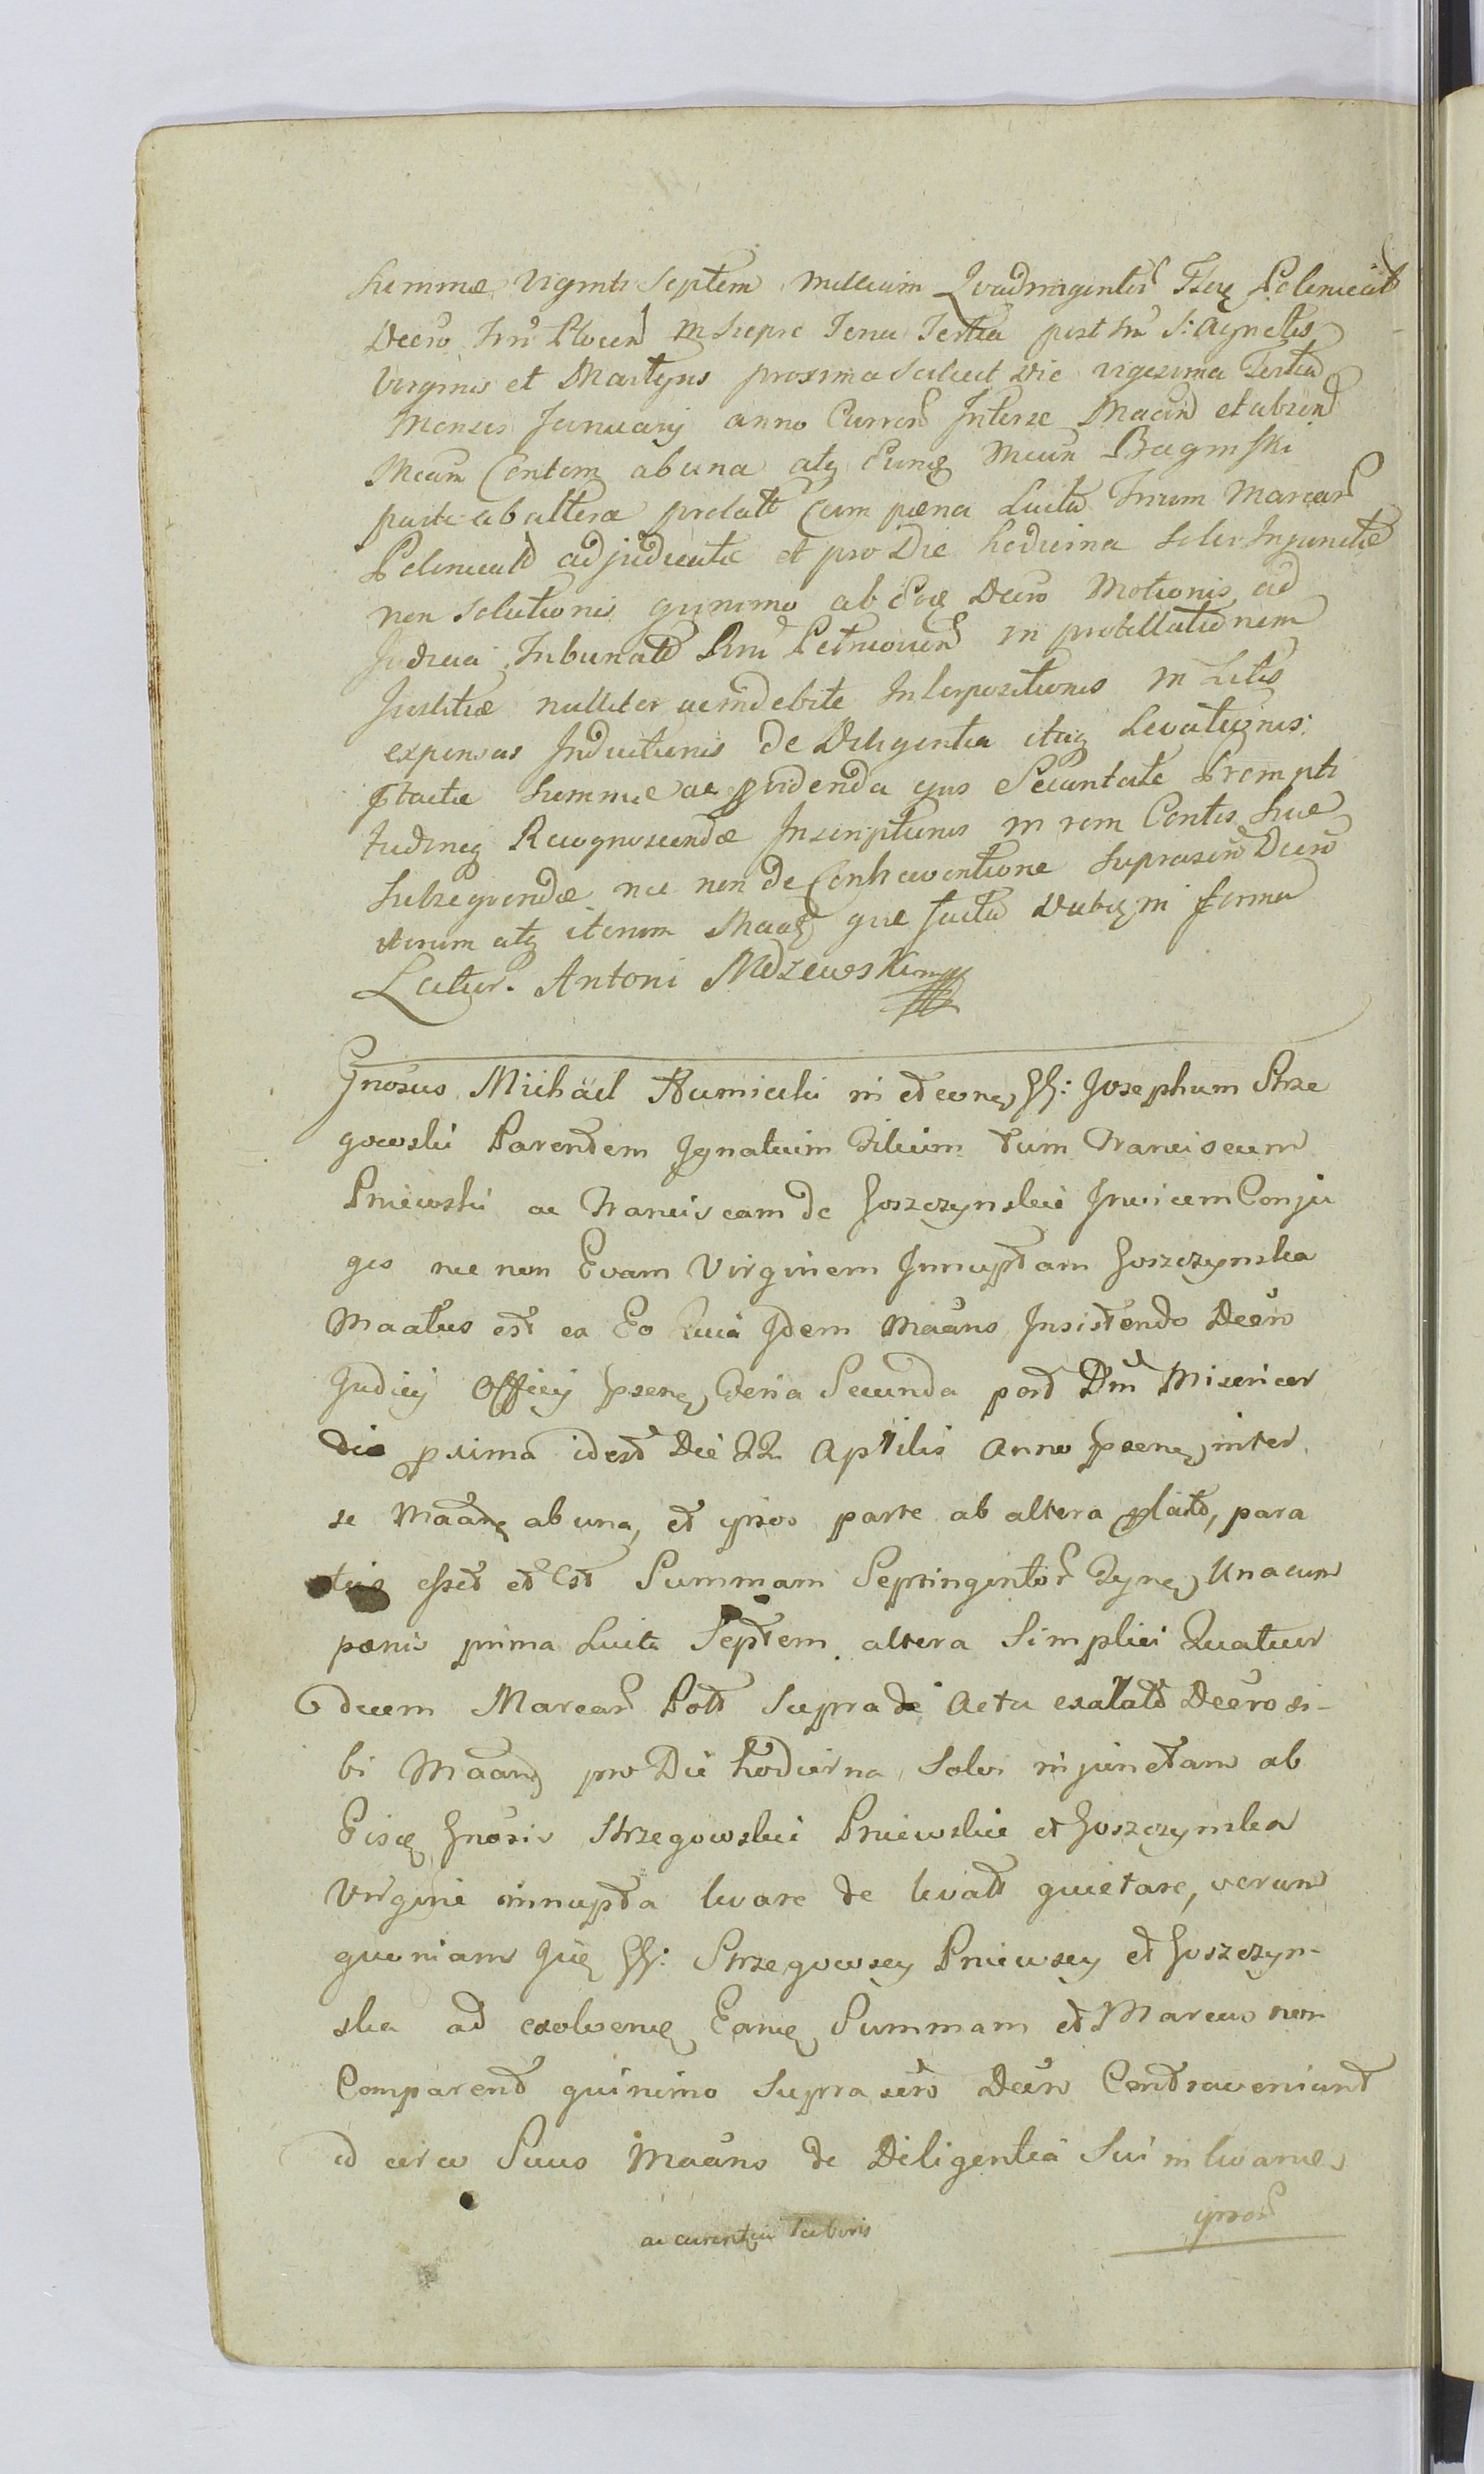 Summæ Viginti Septem Millium Quadringentor Flor Polonicat
Decro Trri Plocen in Sieprc Feria Tertia post Fm S: Agnetis
Virginis et Martyris proxima scilicet die vigesima Tertia
Mensis January anno Curren Interse Maan et absen
Maan Contem ab una atq Eunq Maan Baginski
parte ab altera prolatt Cum pæna Luita Trium Marcar
Polonicatt adjudicatæ et pro Die hodierna Solvi Injunctæ
non Solutionis quinimo ab Eoq Decro Motionis ad
Judicia Tribunalit Rni Petricovien in protellationem
Justitiæ nulliter ac indebite Interpositionis in Litis
expensas Inductionis de Diligentia itaq Levationis
ptactæ Summæ ac pvidenda ejus Securitate Prompti
tudineq Recognoscendæ Inscriptionis in rem Contis Suæ
Subsequendæ nec non de Contraventione Suprascri Decro
iterum atq iterum Maaq que facta dubiq in forma
Latur. Antoni Mdzewski mpp
Gnosus Michäel Rumicki in et conq GG: Josephum Strze
gowski Parentem Ignatium Filium tum Franciscum
Pniewski ac Franciscam de Goszczynskie Invicem Conju
ges nec non Evam Virginem Innuptam Goszczynska
Maatus est ex Eo Quia Idem Maans Insistendo Decro
Judicy Officy psenq Feria Secunda post Dm Misericor
dia pxima idest Die 22 Aprilis Anno psenq inter
se Maanq ab una, et ipsos parte ab altera platt, para
tus esset et est Summam Septingentor Tynq Una cum
pænis prima Luita Septem altera Simplici Quatuor
decem Marcar Pott Supra de Actu exalatt Decro si-
bi Maanq pro Die hodierna Solvi injunctam ab
Eisq Gnosis Strzegowskie Pniewskie et Goszczynska
Virgine innupta levare de levatt quietare, verum
quoniam Iiq GG: Strzegowscy Pniewscy et Goszczyn-
ska ad exolvenq Eanq Summam et Marcas non
Comparent quinimo Suprascro Decro Contraveniunt
id circo Suus Maans de Diligentia Sui in levanq
ipsor
ac carentia laboris